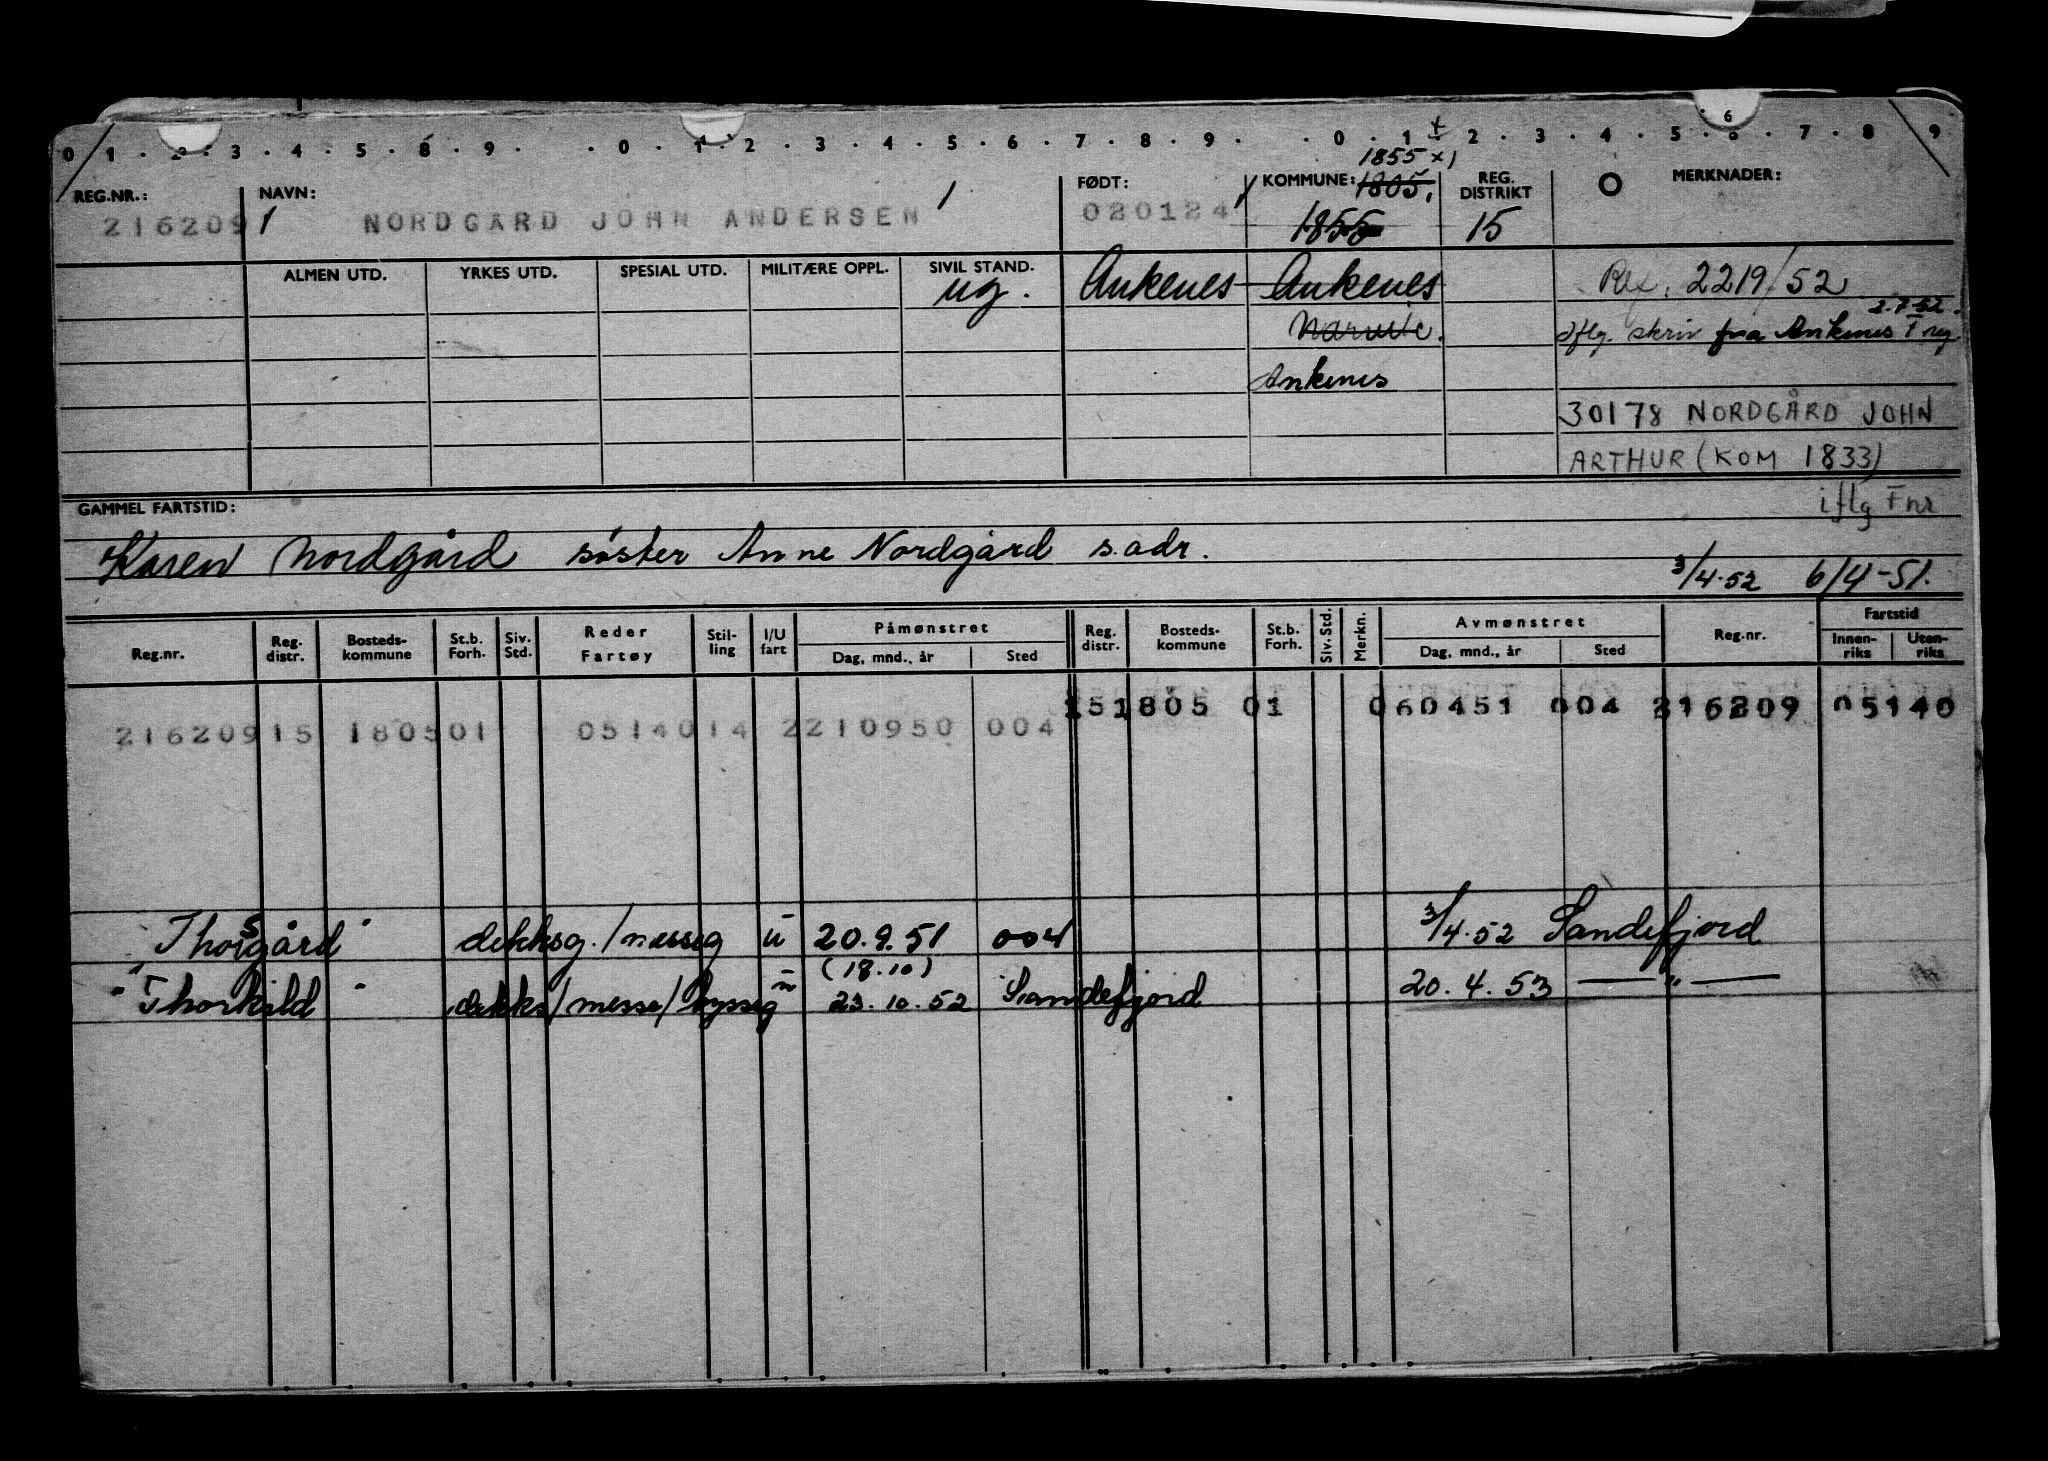 0 1 . 2 . 3 . 4 . 5 . 8 . 9 . . 0 . 1 . 2 . 3 . 4 . 5 . 6 . 7 . 8 . 9 . . 0 . 1 . 2 . 3 . 4 . 5 . 6 . 7 . 8 . 9
6
REG.NR.: NAVN: FØDT: KOMMUNE: REG. DISTRIKT MERKNADER:
1855 x)
1805.
216209 1 NORDGÅRD JOHN ANDERSEN 1 020124 1855 15
ALMEN UTD. YRKES UTD. SPESIAL UTD. MILITÆRE OPPL. SIVIL STAND.
ug. Ankenes Ankenes Ref. 2219/52
2.7.52.
Narvik. Iflg. skriv fra Ankenes F reg.
Ankenes
30178 NORDGÅRD JOHN
ARTHUR (KOM 1833)
iflg F nr
GAMMEL FARTSTID:
Karen Nordgård søster Anne Nordgård s.adr.
3/4-52 6/4-51.
Reg.nr. Reg. distr. Bosteds-kommune St.b. Forh. Siv. Std. Reder Fartøy Stil-ling I/U fart Påmønstret Dag, mnd., år Sted Reg. distr. Bosteds-kommune St.b. Forh. Siv. Std. Merkn. Avmønstret Dag, mnd., år Sted Reg.nr. Fartstid Innen-riks Uten-riks
151805 01 060451 004 216209 05140
216209 15 180501 0514014 2210950 004
Thorsgård" dekksg./messeg u 20.9.51 004 3/4.52 Sandefjord
(18.10)
"Thorkild" dekks/messe/bysseg u 23.10.52 Sandefjord 20.4.53 — " —